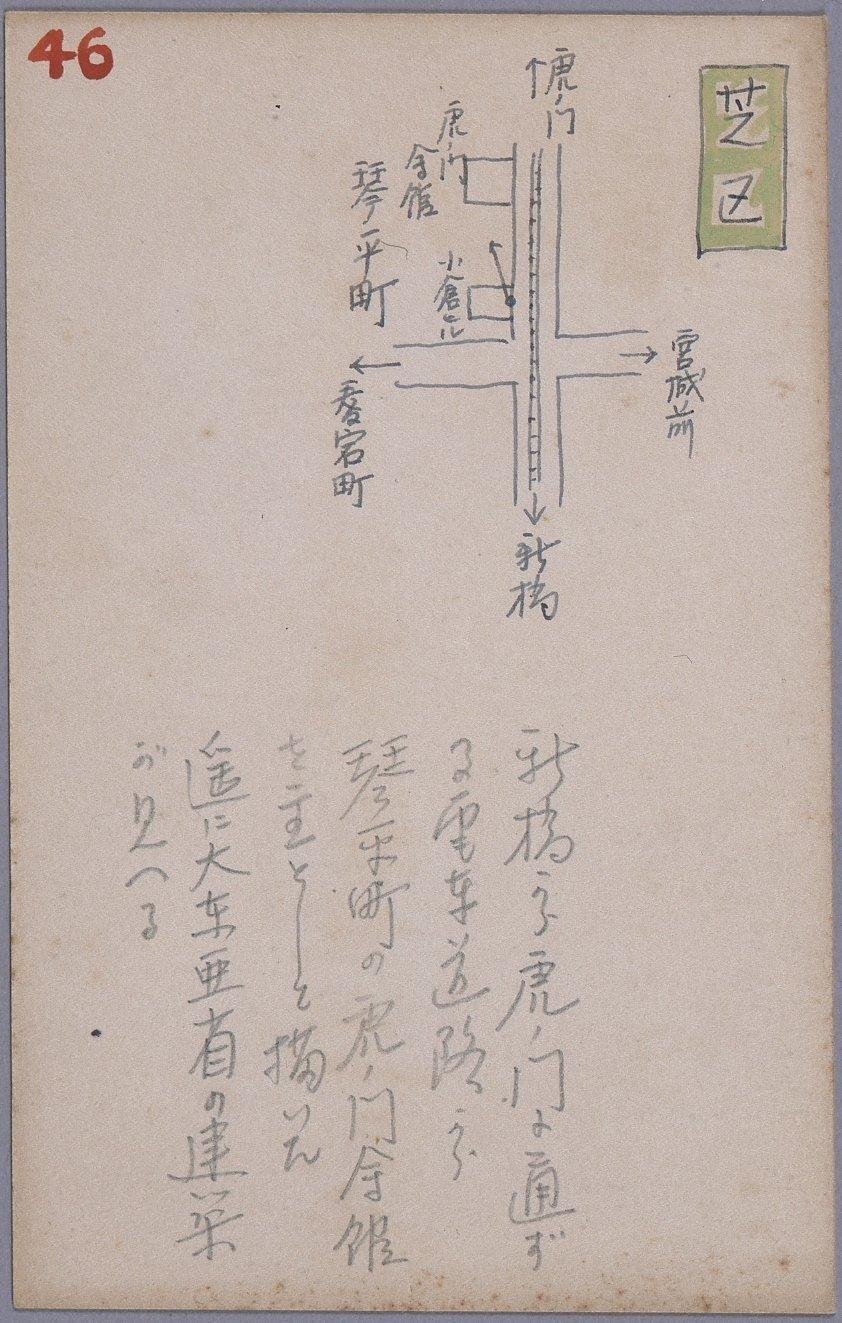 46
芝区
虎ノ門
虎ノ門
会館
琴平町
小倉ビル
宮城前
愛宕町
新橋
新橋から虎ノ門に通ず
る電車道路から
琴平町の虎ノ門会館
を主として描いた
遥に大東亜省の建築
が見へる